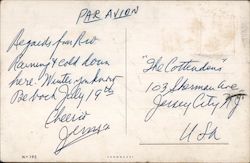 PAR AVION
Regards from Rio
Raining & cold down
here. Winter you know
Be back July 19th
Cheerio
"The Cottendens"
103 Sherman Ave
Jersey City N J
USA